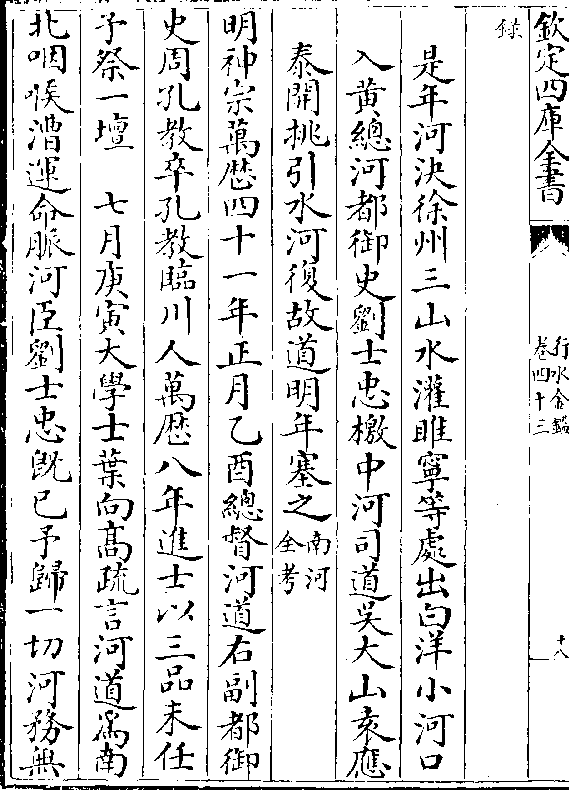 欽定四庫全書
行水金鑑
卷四十三
十八
錄
是年河決徐州三山水灌睢寧等處出白洋小河口
入黃總河都御史劉士忠檄中河司道吳大山袁應
泰開挑引水河復故道明年塞之南河
全考
明神宗萬歷四十一年正月乙酉總督河道右副都御
史周孔教卒孔教臨川人萬歷八年進士以三品未任
予祭一壇　七月庚寅大學士葉向高疏言河道為南
北咽喉漕運命脈河臣劉士忠既已予歸一切河務無